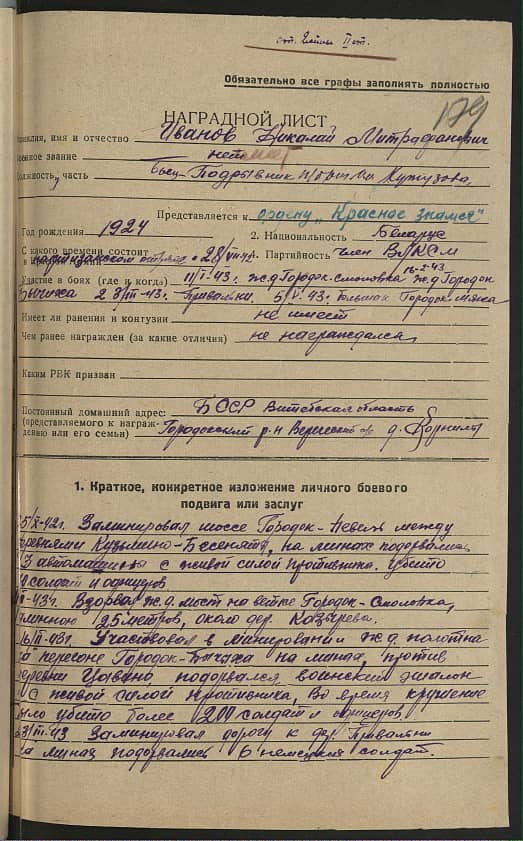 от. Войны II ст.
Обязательно все графы заполнять полностью
179
НАГРАДНОЙ ЛИСТ
амилия, имя и отчество Иванов Николай Митрофанович
оенное звание нет
олжность, часть боец-Подрывник п/отр. им. Кутузова.
Представляется к ордену „Красное знамя"
Год рождения 1924 2. Национальность Беларус
С какого времени состоит в партизанском отряде с 28/VIII-42 4. Партийность член ВЛКСМ
16-2-43г.
Участие в боях (где и когда) 11/I-43г. ж.д Городок-Смоловка ж.д Городок
Бычиха 23/III-43г. Привалки. 5/V-43г. большак Городок-
Имеет ли ранения и контузии не имеет
Чем ранее награжден (за какие отличия) не награждался
Каким РВК призван
Постоянный домашний адрес: БССР Витебская область
(представляемого к награж-
дению или его семьи) Городокский р-н д.
1. Краткое, конкретное изложение личного боевого
подвига или заслуг
5/X-42г. Заминировал шоссе Городок-Невель между
деревнями Кузьмино-Бесенята, на минах подорвались
3 автомашины с живой силой противника. Убито
солдат и офицеров
-43г. Взорвал ж.д. мост на ветке Городок-Смоловка,
длиною 25 метров, около дер. Козырева.
16/II-43г. Участвовал в минировании ж.д полотна
на перегоне Городок-Бычиха на минах, против
деревни подорвался воинский эшалон
с живой силой противника, во время крушение
было убито более 200 солдат и офицеров.
23/III-43 Заминировал дорогу к дер. Привалки
на минах подорвались 6 немецких солдат.